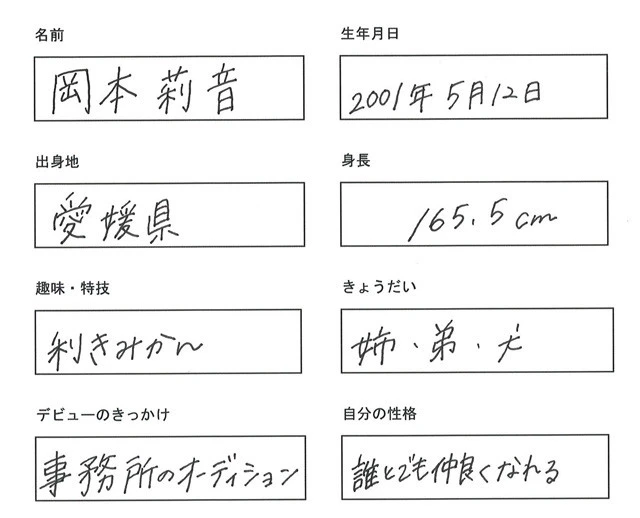 名前
岡本 莉音
生年月日
2001年5月12日
出身地
愛媛県
身長
165.5cm
趣味・特技
利きみかん
きょうだい
姉・弟・犬
デビューのきっかけ
事務所のオーディション
自分の性格
誰とでも仲良くなれる